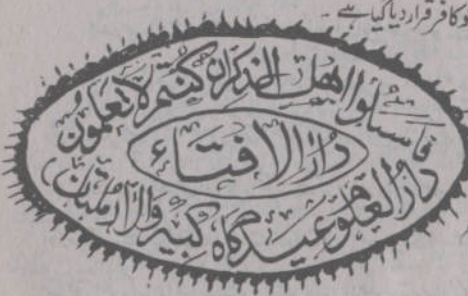 کافر قرار دیا گیا ہے ۔
فاسئلوا اهل الذکر ان کنتم لا تعلمون
دار الافتاء
دار العلوم عیدگاہ کبیر والا ملتان